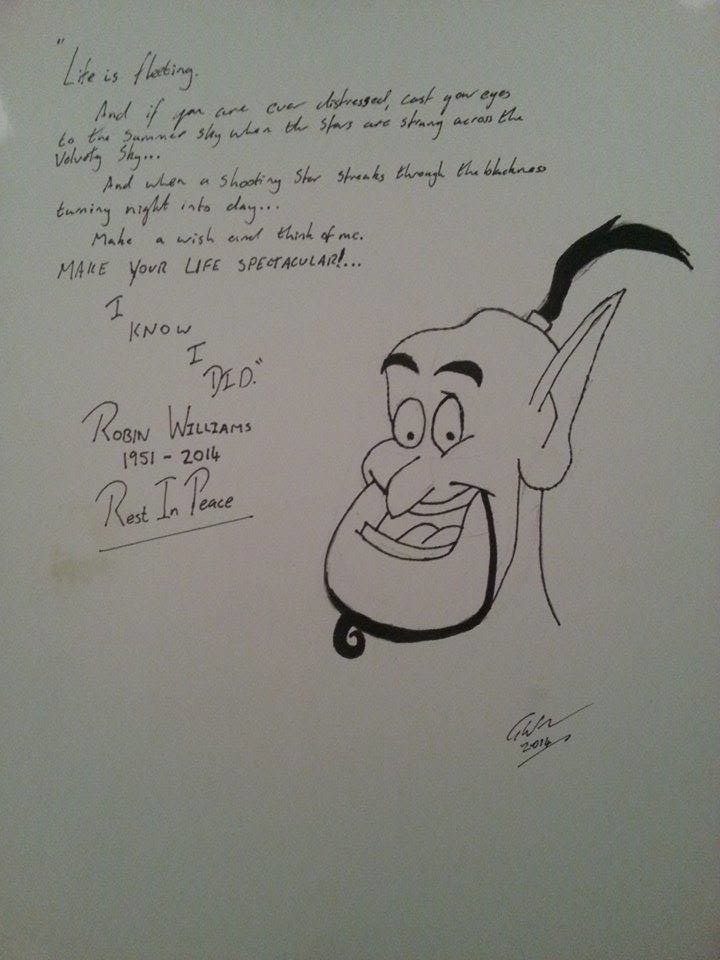 "Life is fleeting.
And if you are ever distressed, cast your eyes
to the Summer sky when the Stars are strung across the
Velvety Sky...
And when a shooting Star streaks through the blackness
turning night into day...
Make a wish and think of me.
MAKE YOUR LIFE SPECTACULAR!...
I
KNOW
I
DID."
ROBIN WILLIAMS
1951 - 2014
Rest In Peace
2014